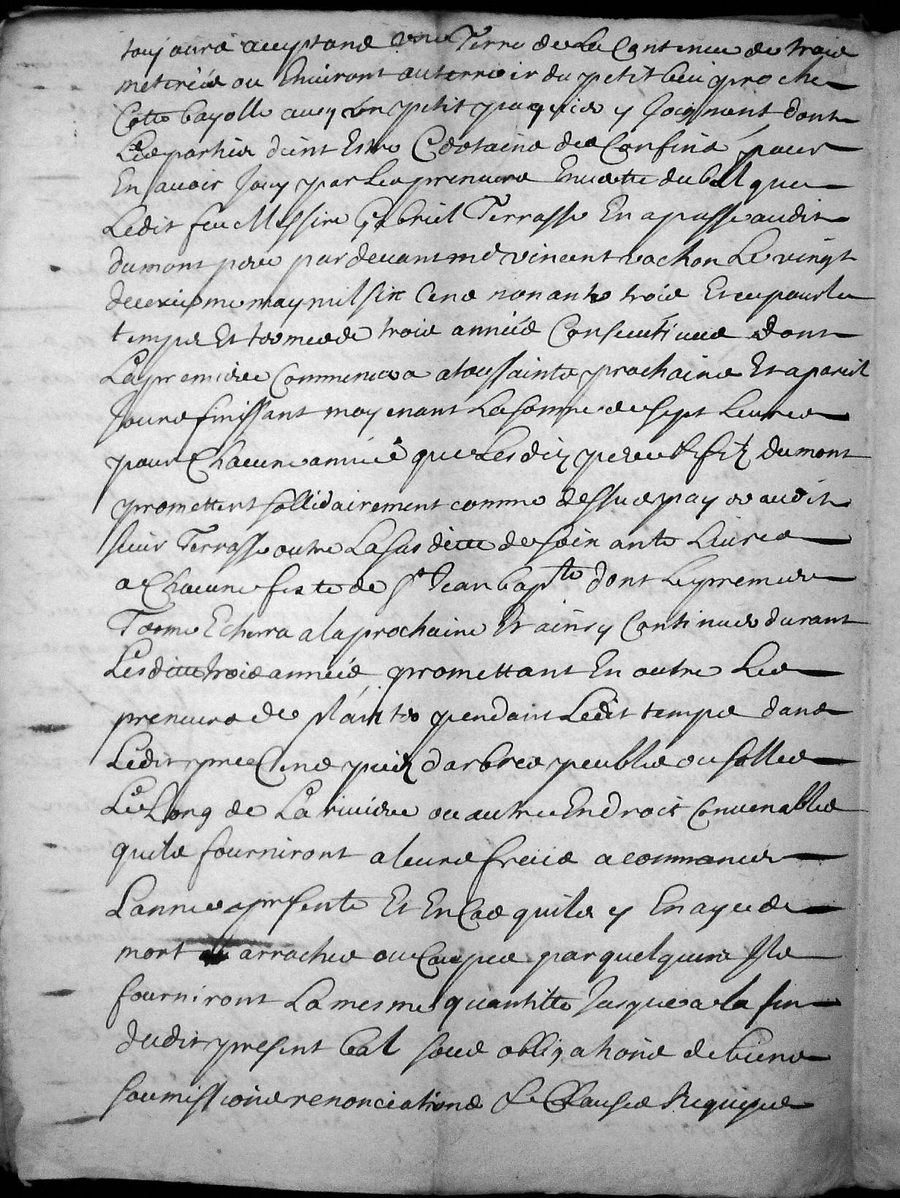 toujours acceptans une Terre de La Contenue de trois
metreés ou Environt au terroir du petit bui proche
Cotte bayolle avecq un petit paquier y Joignant dont
Les parties dient Estre Certaines des Confins, pour
En avoir Jouy par Les preneurs En vertu du bail que
Ledit feu Messire Gabriel Terrasse En a passe audit
dumont pere par devant me vincent vachon Le vingt
deuxiesme may mil six Cens nonante trois Et ce pour le
temps Et terme de trois années Consecutives dont
La premiere Commencera a toussaints prochaine Et a pareil
Jour finissant moyenant La somme de sept Livres
pour Chacune année que Lesdiz pere et filz dumont
promettent sollidairement comme dessus payer audit
sieur Terrasse outre La susditte de soixante Livres
a Chacune feste de St Jean bapte dont Le premier
Terme Echerra a la prochaine Et ainsy Continuer durant
Lesdittes trois années promettant En outre Les
preneurs de plainter pendant Ledit temps dans
Ledit pre Cens piedz d'arbres peuble ou solles
Le Long de La riviere ou autre Endroit Convenable
quils fourniront a leurs freis a commancer
Lannee presente Et En Cas quils y En aye de
mort arraches ou Coupes par quelquun Ils
fourniront La mesme quantitte Jusques a la fin
dudit present bal sous obligations de biens
soumissions renonciations & Clauses Requises